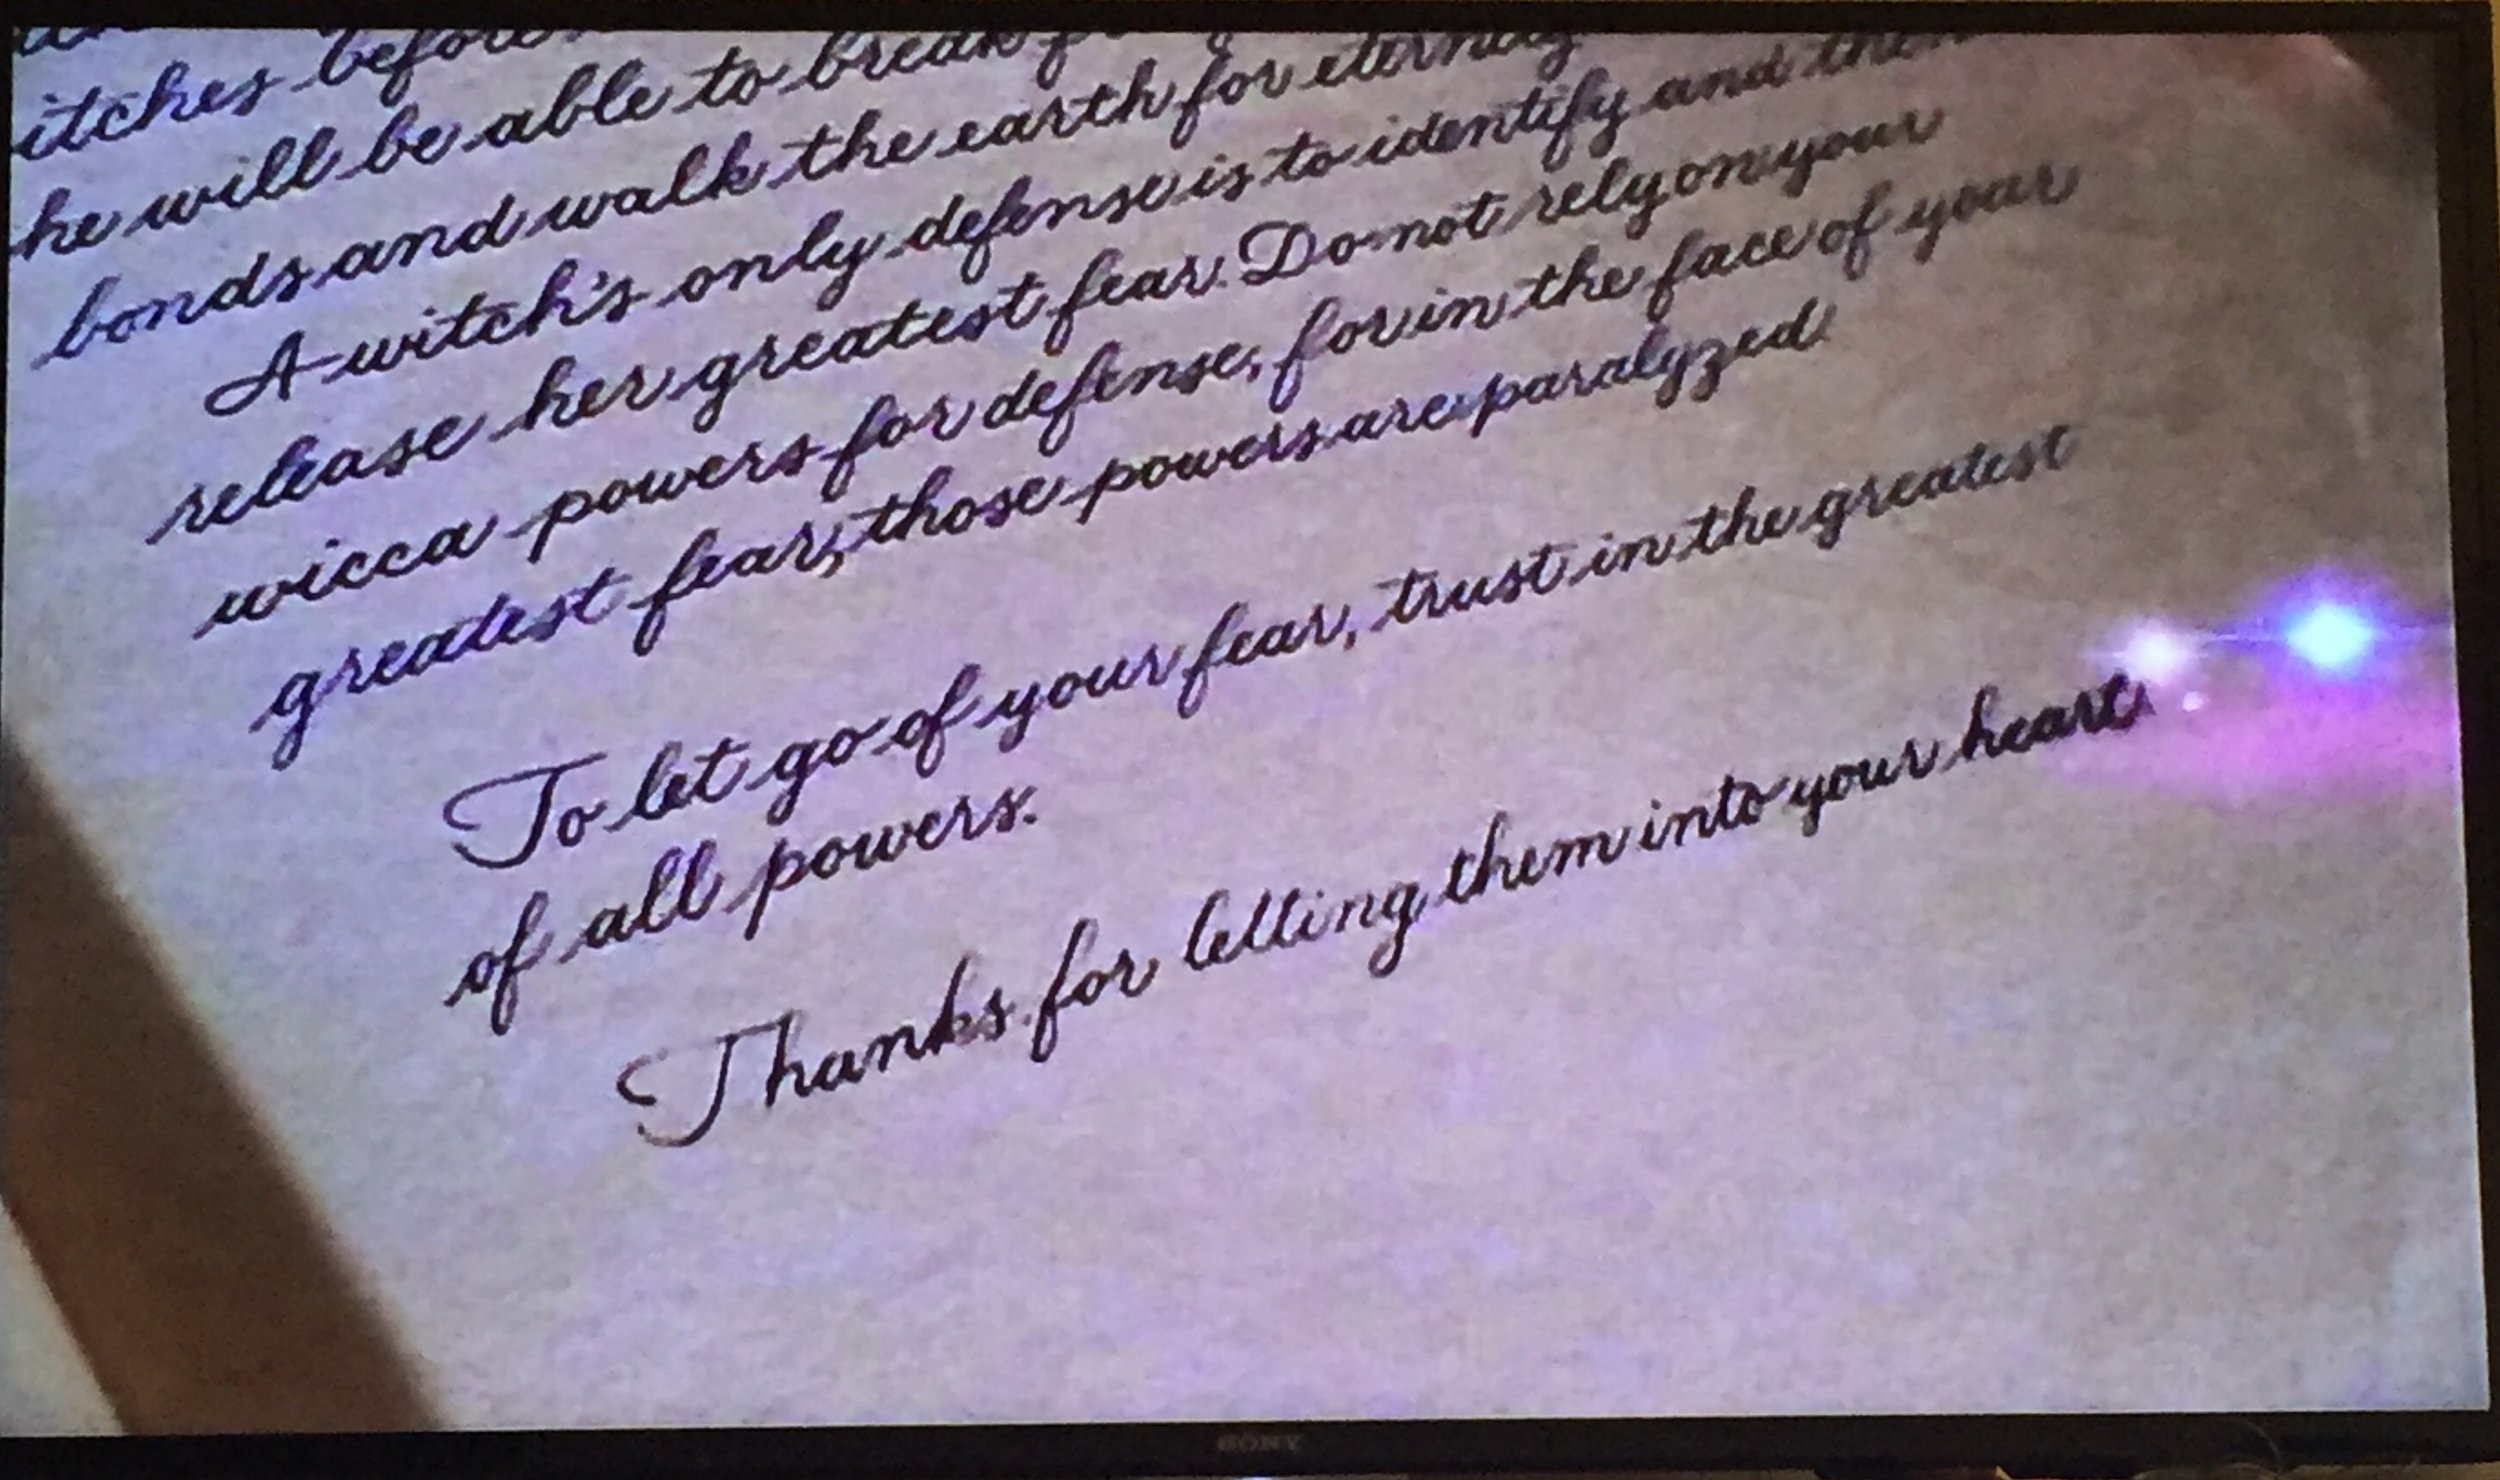 itches before
he will be able to break
bonds and walk the earth for eternity
A witch's only defense is to identify and then
release her greatest fear. Do not rely on your
wicca powers for defense, for in the face of your
greatest fear, those powers are paralyzed.
To let go of your fear, trust in the greatest
of all powers.
Thanks for letting them into your heart.
SONY